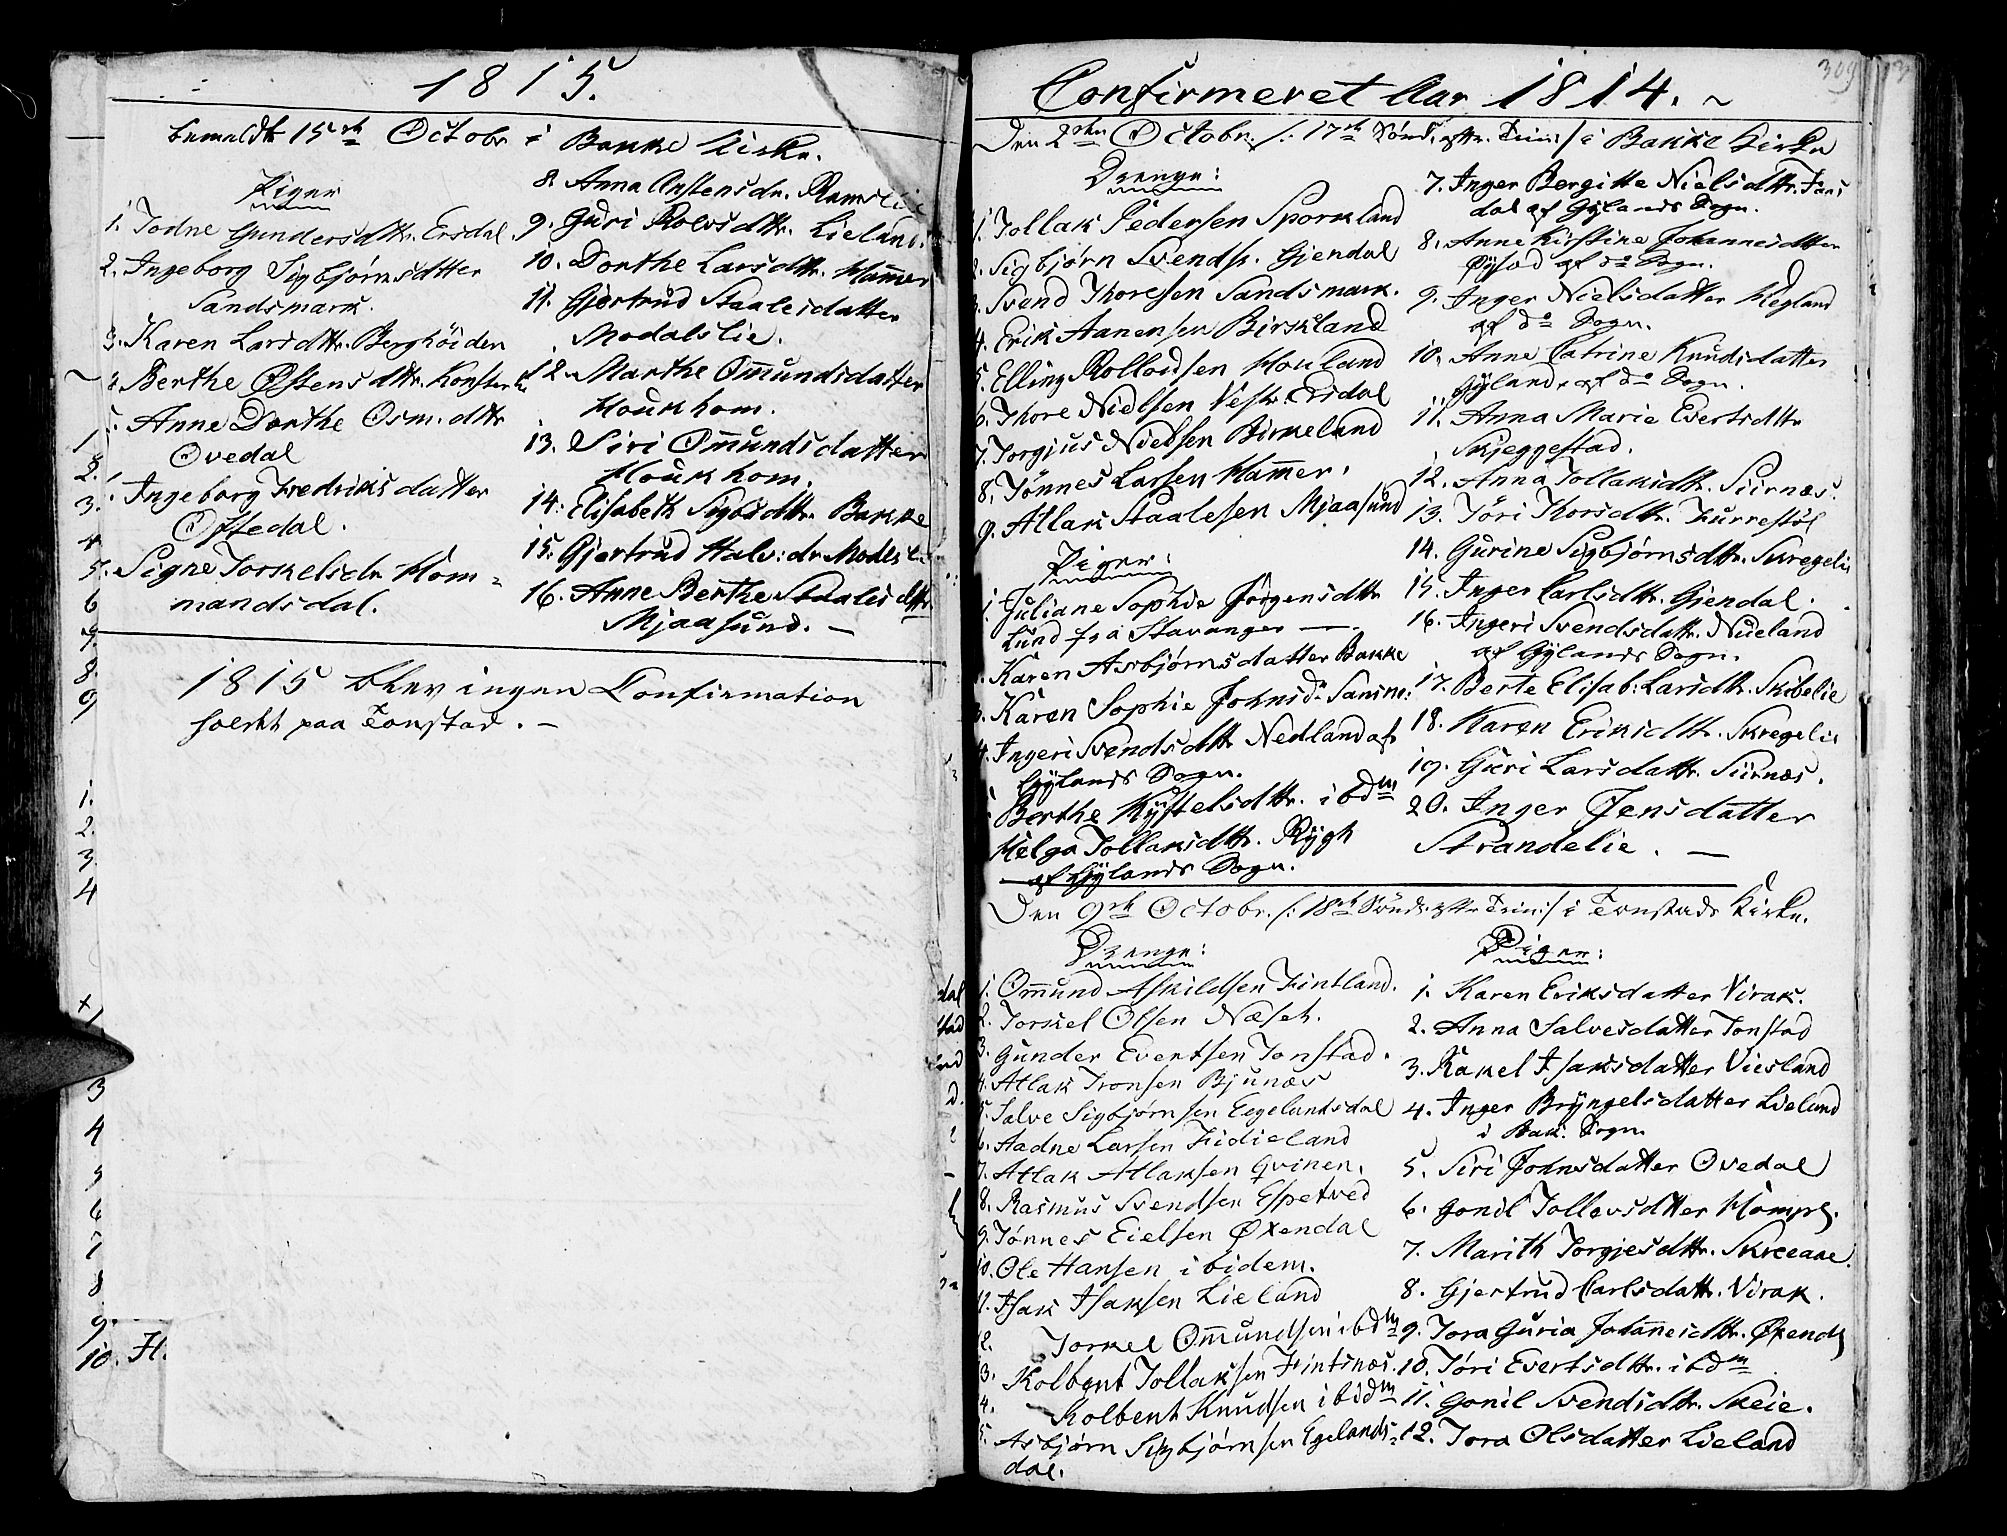 1815.
bemeldte 15de Octobr i Bakke Kirke.
Piger
1. Jodne Gundersdttr. Ersdal.
2. Ingeborg Sigbjørnsdtter
Sandsmark.
3. Karen Larsdttr. Berghöiden
4. Berthe Østensdttr.
5. Anne Dorthe Osm.dttr
Ovedal
Ingeborg Fredriksdatter
Oftedal.
Signe Torkelsdr. Hom=
mandsdal.
8. Anna Anstensdr. Ramslie
9. Guri Rolvsdttr. Lieland.
10. Dorthe Larsdttr. Ham̄er
11. Gjertrud Staalesdatter
Modalslie.
12. Marthe Om̄undsdatter
Houkhom.
13. Siri Om̄undsdatter
Houkhom.
14. Elisabeth Sigbsdttr. Bakke
15. Gjertrud Halv:dr.
16. Anne Berthe Staalesdttr
Mjaasund. —
1815 blev ingen Confirmation
holdt paa Tonstad. —
1
2.
3.
4
5.
6
7.
8.
9
1.
2.
3.
4
3
4
5
6
7
8
9.
10. H.
309
Confirmeret Aar 1814. ~
Den 2den Octobr. /: 17de Sönd. eftr. Trin:/ i Bakke Kirke
Drenge:
1. Tollak Pedersen Sporkland
2. Sigbjørn Svends. Gjendal
3. Svend Thoresen Sandsmark.
4. Erik Aanensen Birkeland
5. Elling Rollovsen Houland
6. Thore Nielsen Vestr. Ersdal
7. Torgjus Nielsen Birkeland
8. Tönnes Larsen Ham̄er.
9. Atlak Staalesen Mjaasund
Piger:
1. Juliane Sophie Jörgensdttr
Lund fra Stavanger —
2. Karen Asbjørnsdatter Bakke
3. Karen Sophie Johnsd.
4. Ingeri Svendsdttr Nedland af
Gylands Sogn.
5. Berthe Kystelsdttr. ibdm
Helga Tollaksdttr. Rygh
af Gylands Sogn.
7. Inger Bergitte Nielsdttr.
dal af Gylands Sogn.
8. Anne Kirstine Johannesdtter
Øysad af do Sogn.
9. Inger Nielsdatter Hegland
af do Sogn.
10. Anne Catrine Knudsdatter
Gyland, af do Sogn.
11. Anna Marie Evertsdttr
Skjeggestad.
12. Anna Tollaksdttr. Siirnæs.
13. Jöri Thorsdttr. Furrestöl
14. Gurine Sigbjørnsdttr. Skregelie
15. Inger Carlsdttr. Gjendal.
16. Ingeri Svendsdattr. Nueland
af Gylands Sogn.
17. Berte Elisab: Larsdttr. Skibelie
18. Karen Eriksdttr. Skregelie
19. Guri Larsdattr. Siirnæs.
20. Inger Jensdatter
Strandelie. —
Den 9de Octobr. /: 18de Sönd. eftr. Trin:/ i Tonstads Kirke.
Drenge:
1. Om̄und Askildsen Fintland.
2. Torkel Olsen Næset.
3. Gunder Evertsen Tonstad.
4. Atlak Tronsen Bjunæs
5. Salve Sigbjørnsen Eegelandsdal
6. Aadne Larsen Fidieland
7. Atlak Atlaksen Qvinen.
8. Rasmus Svendsen Espetved
9. Tönnes Eielsen Øxendal
10. Ole Hansen ibidem.
11. Isak Isaksen Lieland
12. Torkel Om̄undsen ibdm
3. Kolbent Tollaksen Fintsnæs.
4. Kolbent Knudsen ibidm
5. Asbjørn Sigbjørnsen Egelands=
dal.
Piger:
1. Karen Eriksdatter Virak.
2. Anna Salvesdatter Tonstad
3. Rakel Isaksdatter Viesland
4. Inger Bryngelsdatter Lieland
i Bak. Sogn
5. Siri Johnsdatter Ovedal
6. Gonil Tollevsdtter Hompl.
7. Marith Torgjesdttr. Skreeaae.
8. Gjertrud Carlsdattr. Virak.
9. Tora Guria Johannesdttr. Øxendl
10. Töri Evertsdttr. ibdm
11. Gonil Svendsdttr. Skeie.
12. Tora Olsdatter Lieland